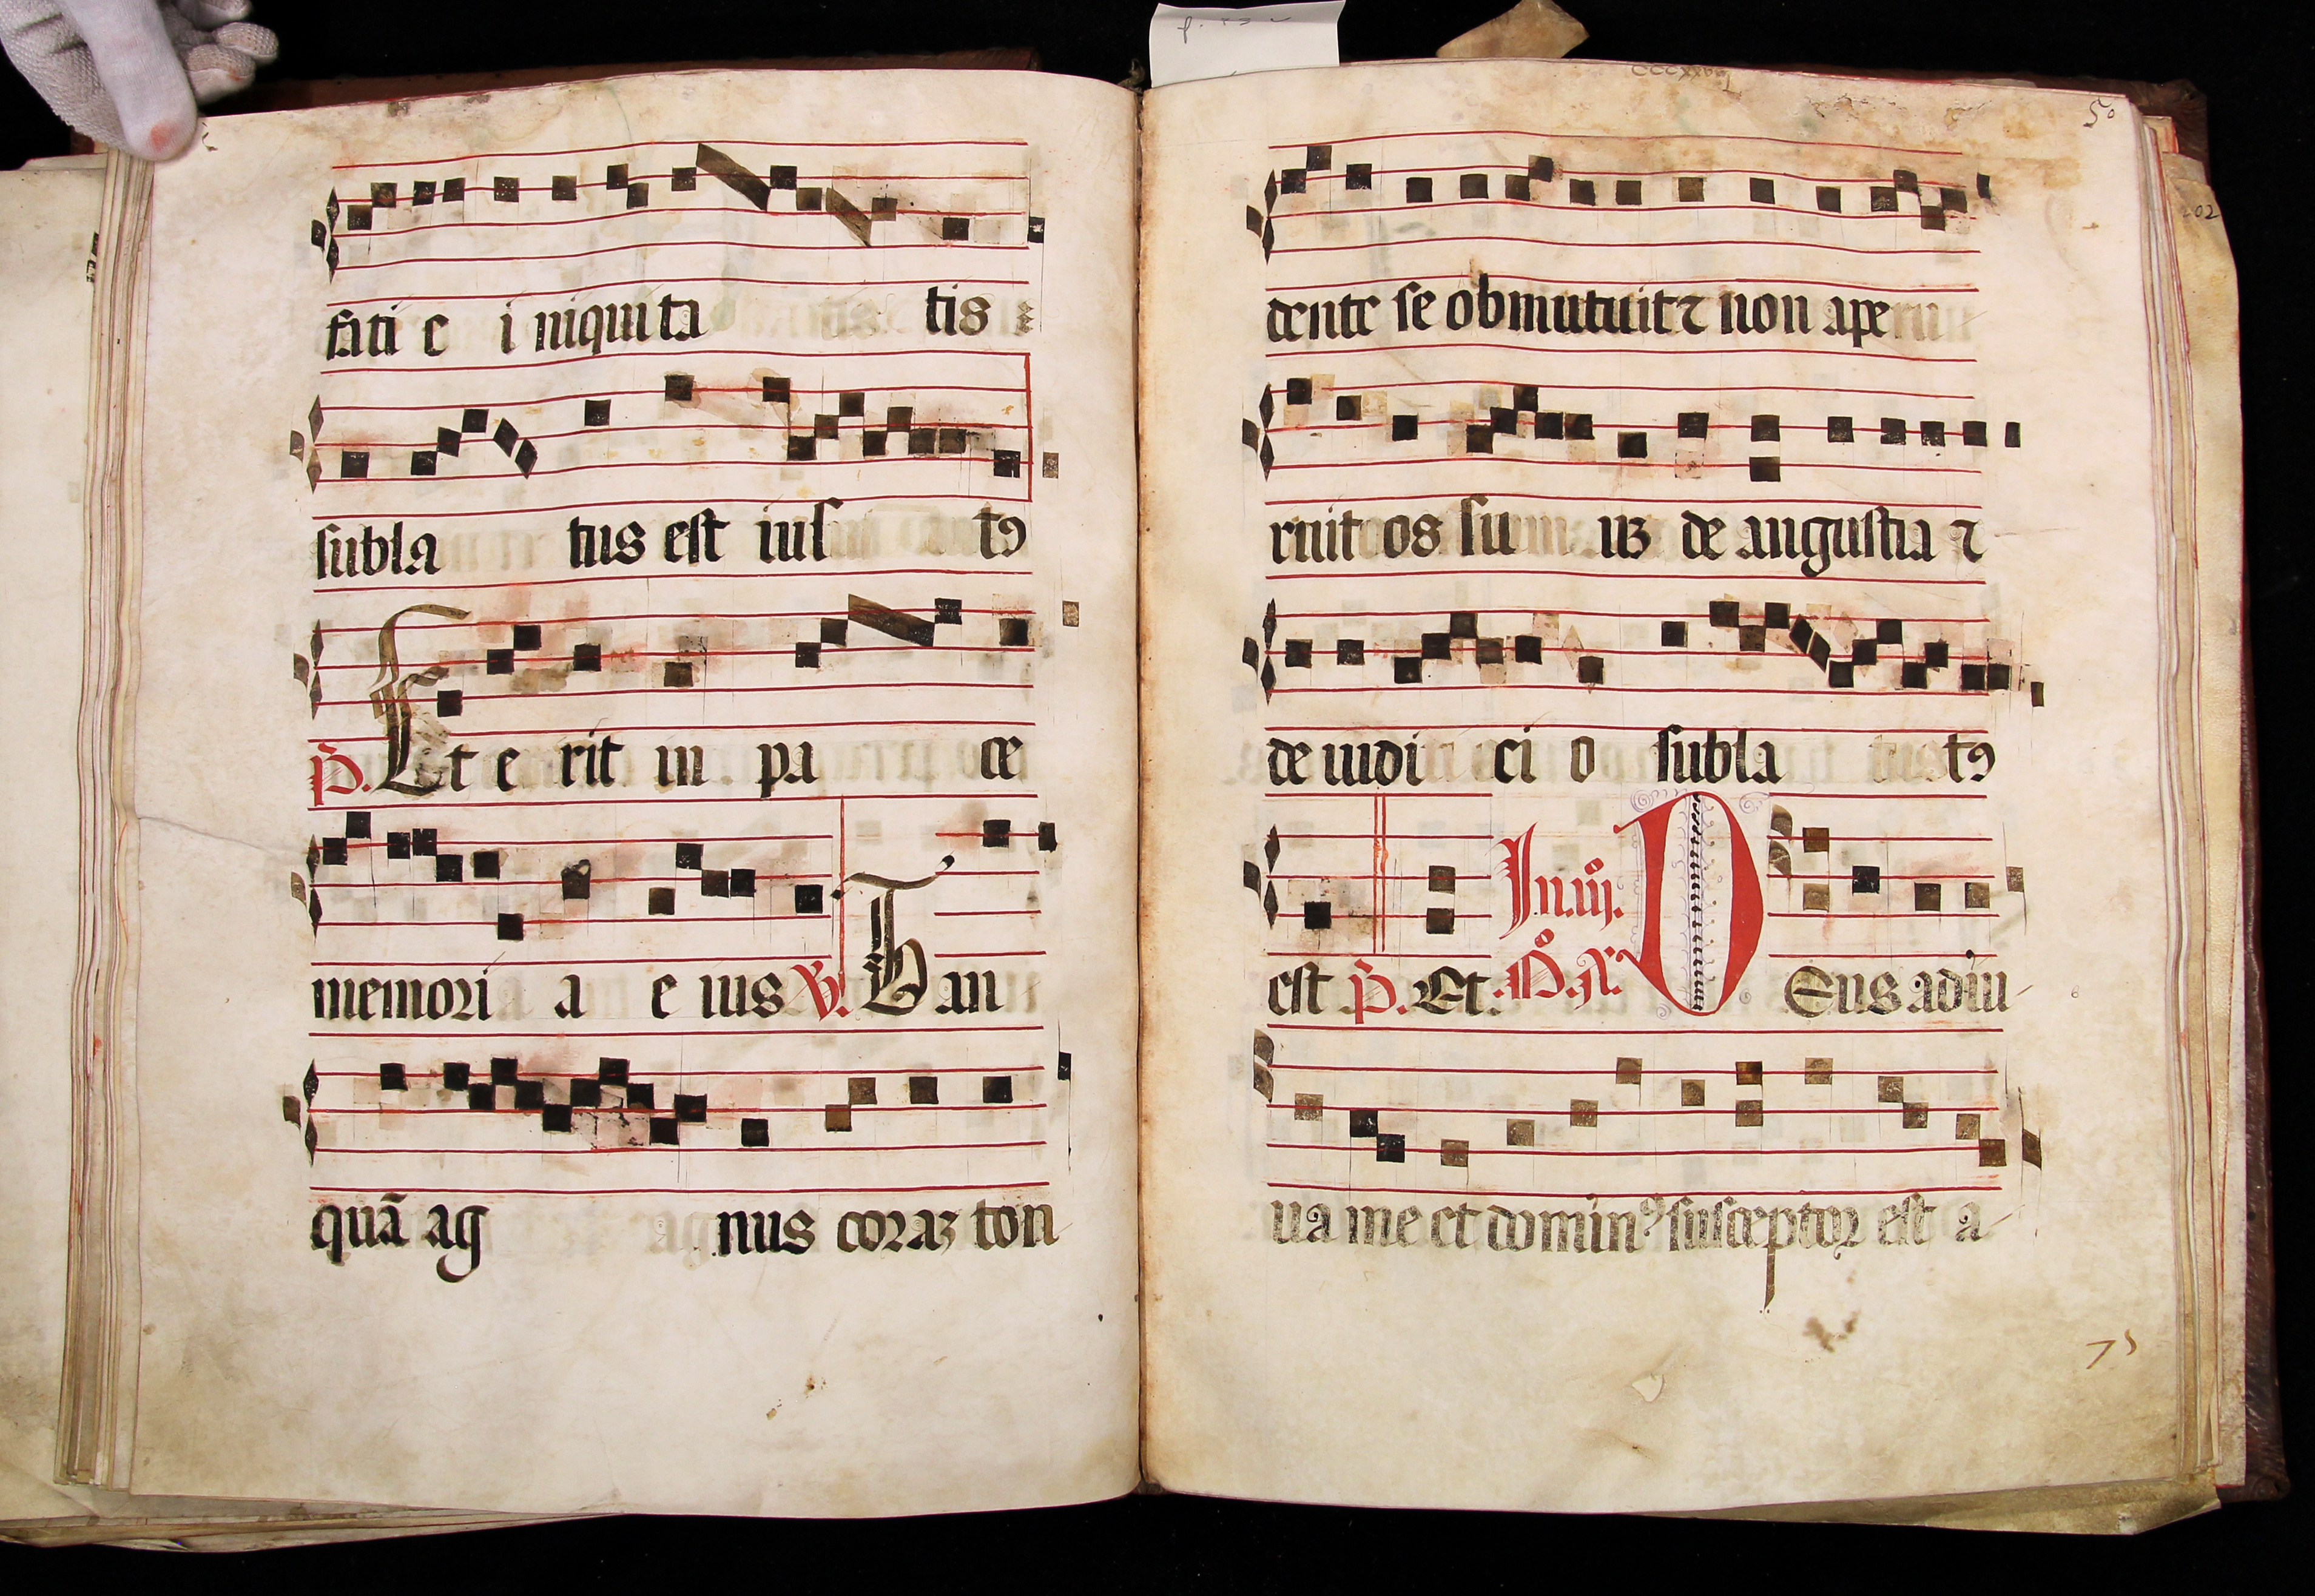 fati e i niquita tis
subla tus est ius t9
P. Et e rit in pa ce
memori a e ius V. Tan
quã ag nus coraz ton
50
202
dente se obmutuit ⁊ non ape
ruit os su uz de angustia ⁊
de iudi ci o subla t9
est P. Et. In.iij. D Eus adiu
ua me et domin9 susceptor est a